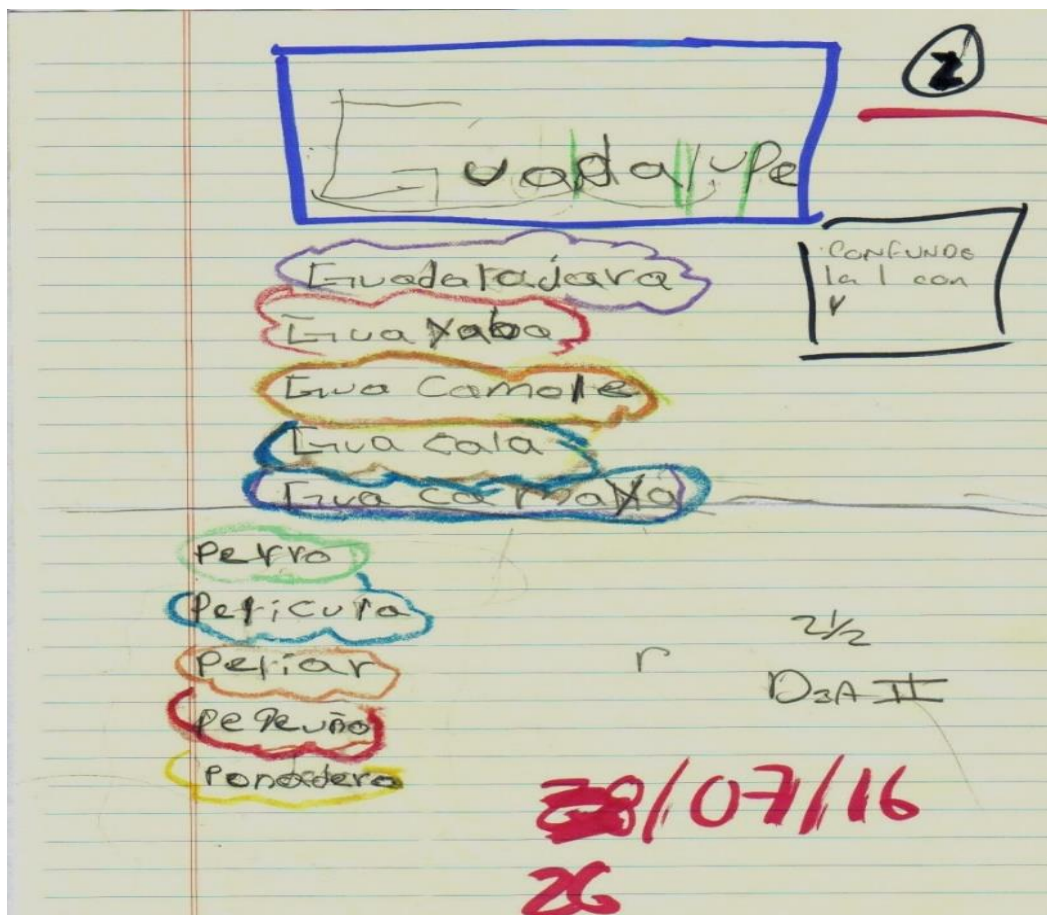 2
Guadalupe
CONFUNDE
la l con
r
Guadarajara
Guayabo
Guacamole
Guacala
Guacamaya
Perro
Pericura
Periar
PeQeuño
Panadero
r
2 1/2
D3A II
28/07/16
26